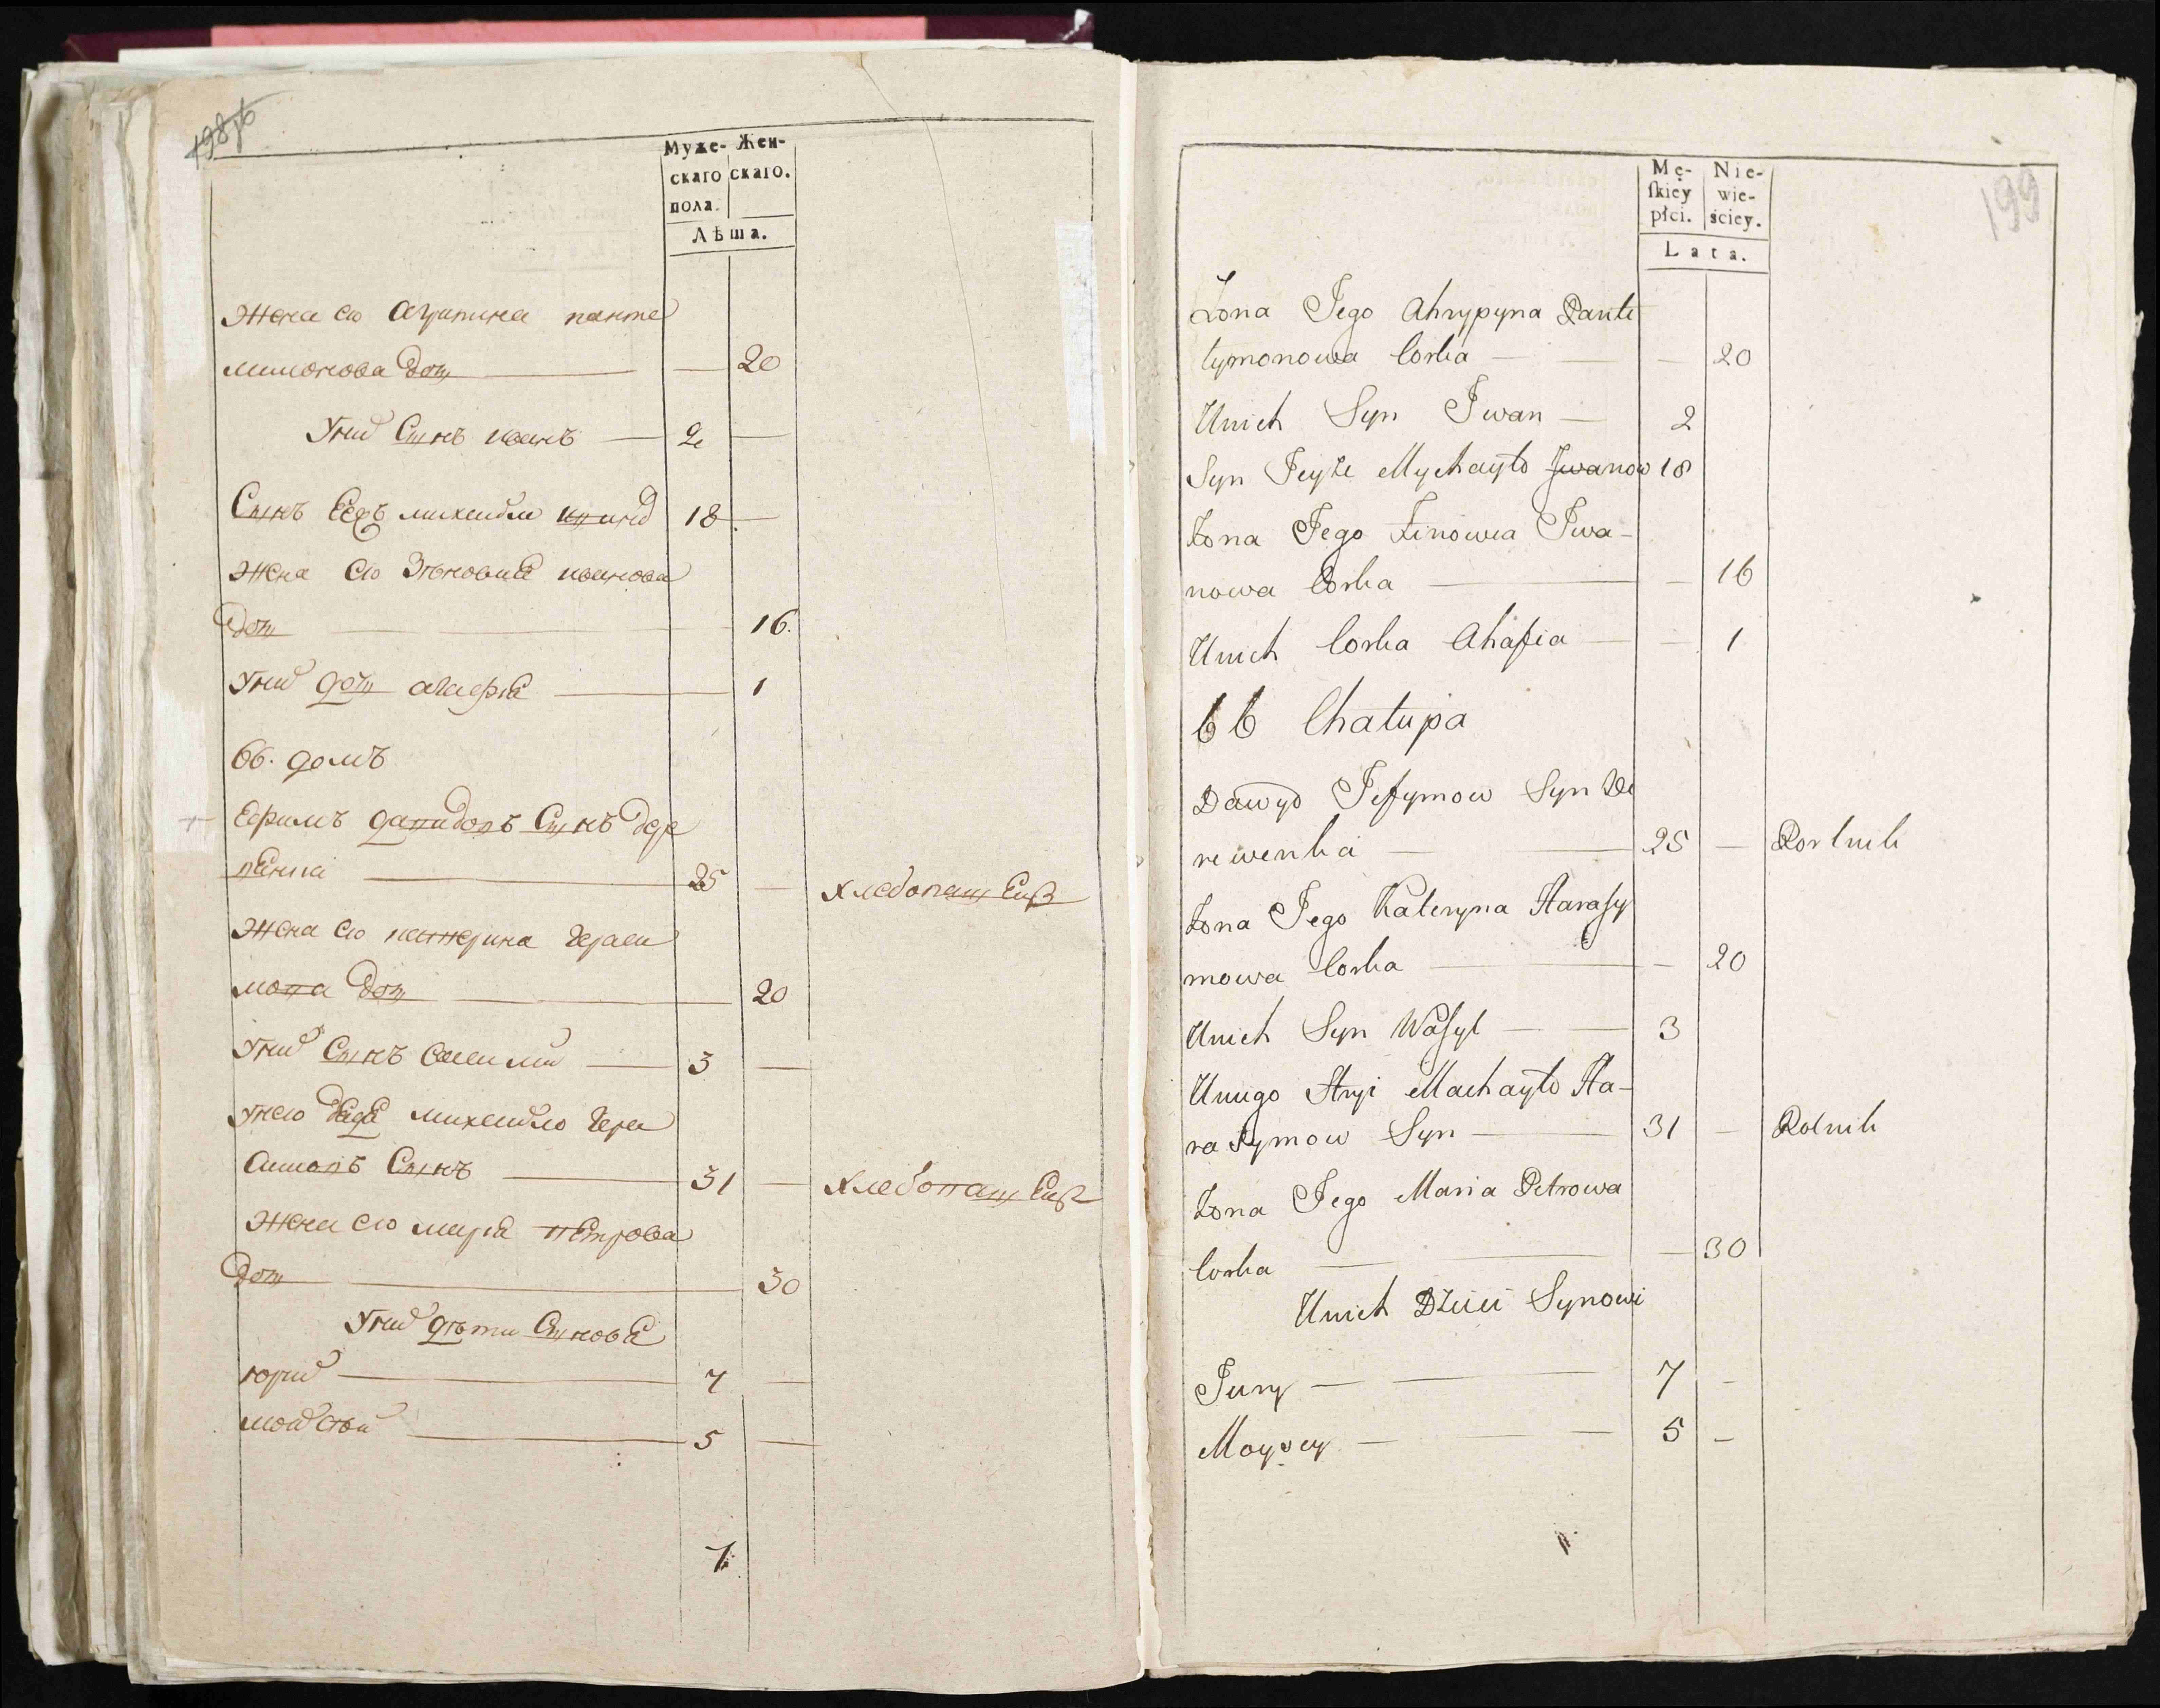 198об
Муже- Жен-
скаго скаго.
пола.
Лѣта.
Жена его Агрипина панте
лимонова дочь — — 20
У них Сынъ иванъ — 2 —
Сынъ Еевъ михайла 18 —
Жена его Зѣновиа иванова
дочь — 16.
У них дочь агафиа — 1
66. домъ
Ефимъ давидовъ Сынъ дере
венки — 25 — хлебопашец
Жена его катерина Гераси
мова дочь — 20
У них Сынъ — 3 —
У него дядя михайло Гера
симовъ Сынъ — 31 — хлебопашец
Жена его мариа петрова
дочь — 30
У них дѣти Сыновя
юрий — 7 —
моисей — 5 —
7
199
Mę- Nie-
skiey wie-
płci. ściey.
Lata.
Żona Jego Ahrypyna Pante
lymonowa Corka — — — 20
Unich Syn Iwan — 2
Syn Jeyże Mychayło Iwanow 18
Żona Jego Zinowia Iwa-
nowa Corka — — 16
Unich Corka Ahafia — — 1
66 Chałupa
Dawyd Jefymow Syn De
rewenka — — 25 — Rolnik
Żona Jego Kateryna Harasy
mowa Corka — — 20
Unich Syn Wasyl — — 3
Uniego Stryi Machayło Ha-
rasymow Syn — 31 — Rolnik
Żona Jego Maria Petrowa
Corka — — — 30
Unich Dzieci Synowi
Jury — — 7 —
Moysey — — — 5 —